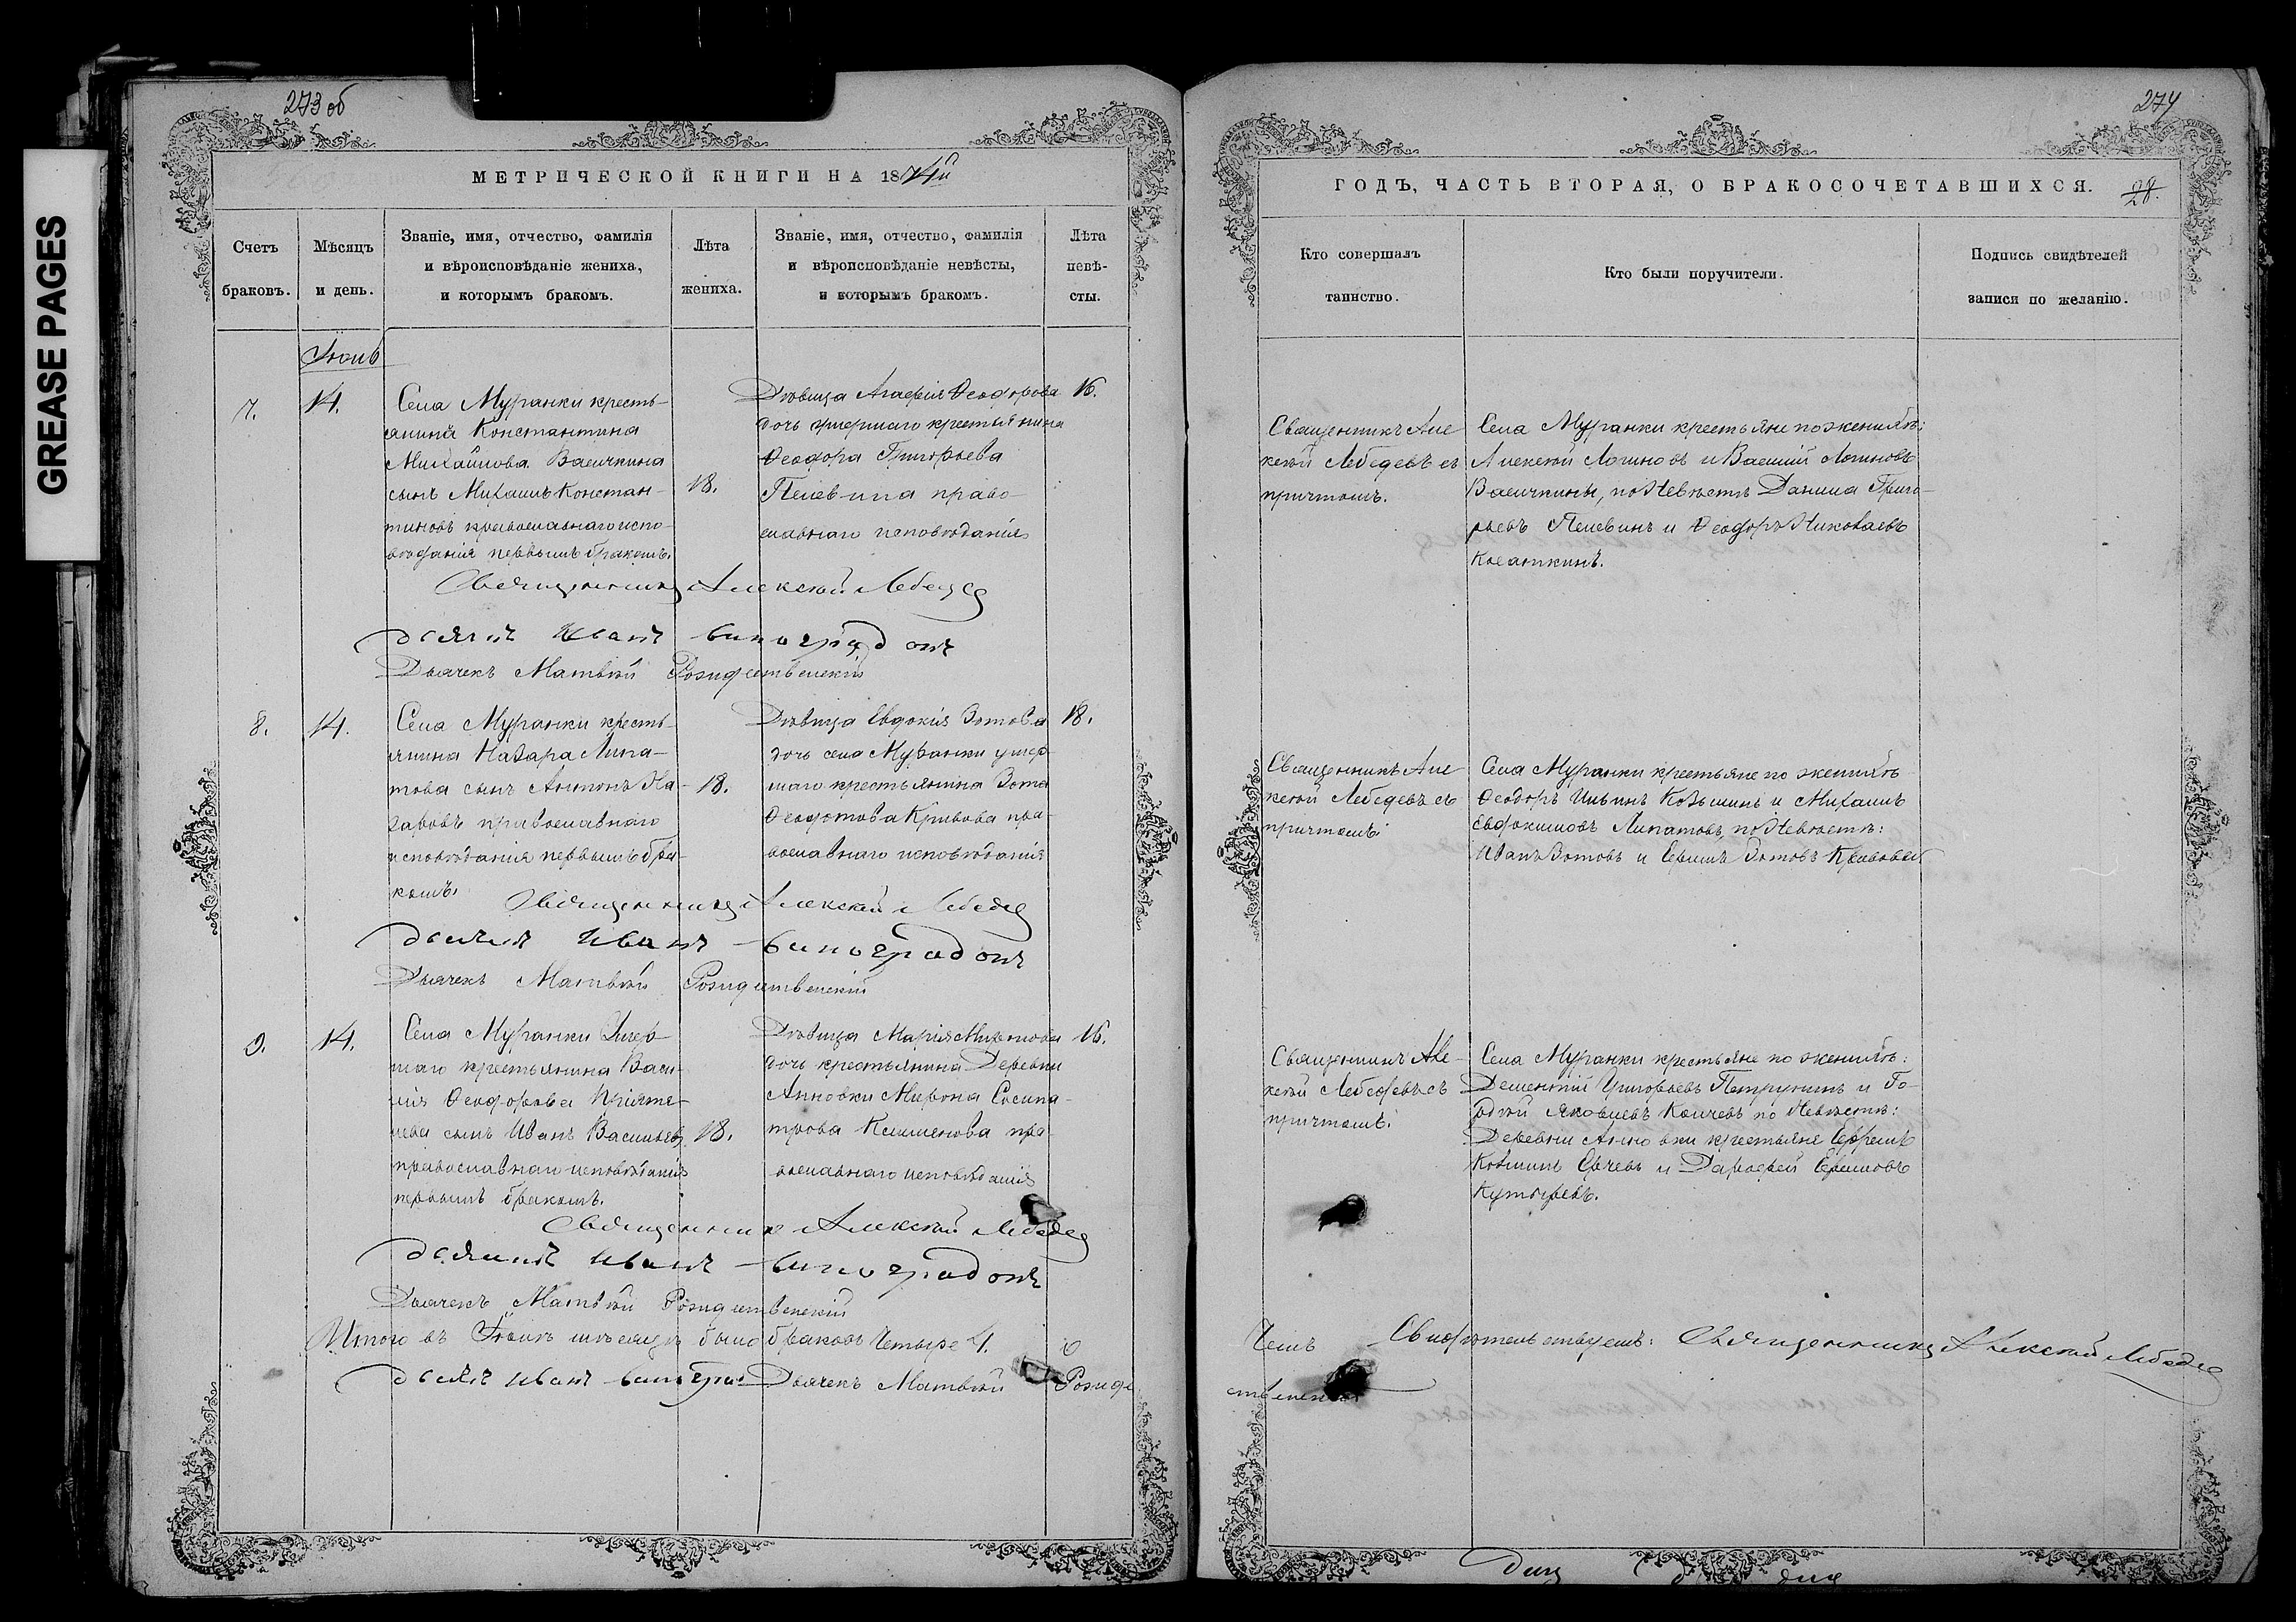 GREASE PAGES
273 об
МЕТРИЧЕСКОЙ КНИГИ НА 1874й
Счетъ браковъ.
Мѣсяцъ и день.
Званіе, имя, отчество, фамилія и вѣроисповѣданіе жениха, и которымъ бракомъ.
Лѣта жениха.
Званіе, имя, отчество, фамилія и вѣроисповѣданіе невѣсты, и которымъ бракомъ.
Лѣта невѣ-сты.
7.
14.
Села Муранки кресть-
янина Константина
Михайлова Васичкина
сынъ Михаилъ Констан-
тиновъ православнаго испо-
вѣданія первымъ бракомъ.
18.
Дѣвица Агафія Ѳеодорова
дочь умершаго крестьянина
Ѳеодора Григорьева
Пелевина право-
славнаго исповѣданія
16.
Священникъ Алексѣй Лебедев
Дьячекъ Матвѣй Рождественскій
8.
14.
Села Муранки кресть-
янина Назара Липа-
това сынъ Антонъ На-
заровъ православнаго
исповѣданія первымъ бра-
комъ.
18.
Дѣвица Евдокія Зотова
дочь села Муранки умер-
шаго крестьянина Зота
Ѳедотова Кривова пра-
вославнаго исповѣданія
18.
Священникъ Алексѣй Лебедев
Дьячекъ Матвѣй Рождественскій
9.
14.
Села Муранки Умер-
шаго крестьянина Васи-
лія Ѳеодорова Пріяте-
лева сынъ Иванъ Васильевъ
православнаго исповѣданія
первымъ бракомъ.
18.
Дѣвица Марія Миронова
дочь крестьянина Деревни
Анновки Мирона Сосипа-
трова Климентова пра-
вославнаго исповѣданія
16.
Священникъ Алексѣй Лебедев
Дьячекъ Матвѣй Рождественскій
Итого въ Іюнѣ мѣсяцѣ было браковъ Четыре 4.
Дьячекъ Матвѣй Рожде
274
ГОДЪ, ЧАСТЬ ВТОРАЯ, О БРАКОСОЧЕТАВШИХСЯ.
28.
Кто совершалъ таинство.
Кто были поручители.
Подпись свидѣтелей записи по желанію.
Священникъ Але
ксѣй Лебедевъ съ
причтомъ.
Села Муранки крестьяне по женихѣ:
Алексѣй Логиновъ и Василій Логиновъ
Васичкины, по Невѣстѣ Данила Григо-
рьевъ Пелевинъ и Ѳеодоръ Николаевъ
Священникъ Але
ксѣй Лебедевъ съ
причтомъ.
Села Муранки крестьяне по женихѣ
Ѳеодоръ Ильинъ Козьминъ и Михаилъ
Евдокимовъ Липатовъ, по Невѣстѣ:
Иванъ Зотовъ и Ермилъ Зотовъ Кривовы
Священникъ Але-
ксѣй Лебедевъ съ
причтомъ.
Села Муранки крестьяне по женихѣ:
Дементій Григорьевъ Петрунинъ и Го-
рдѣй Яковлевъ по Невѣстѣ:
Деревни Анновки крестьяне Ефремъ
Козминъ и Дорофей Ермиловъ
Кутыревъ.
Чемъ Свидѣтельствуемъ: Священникъ Алексѣй Лебедев
ственскій